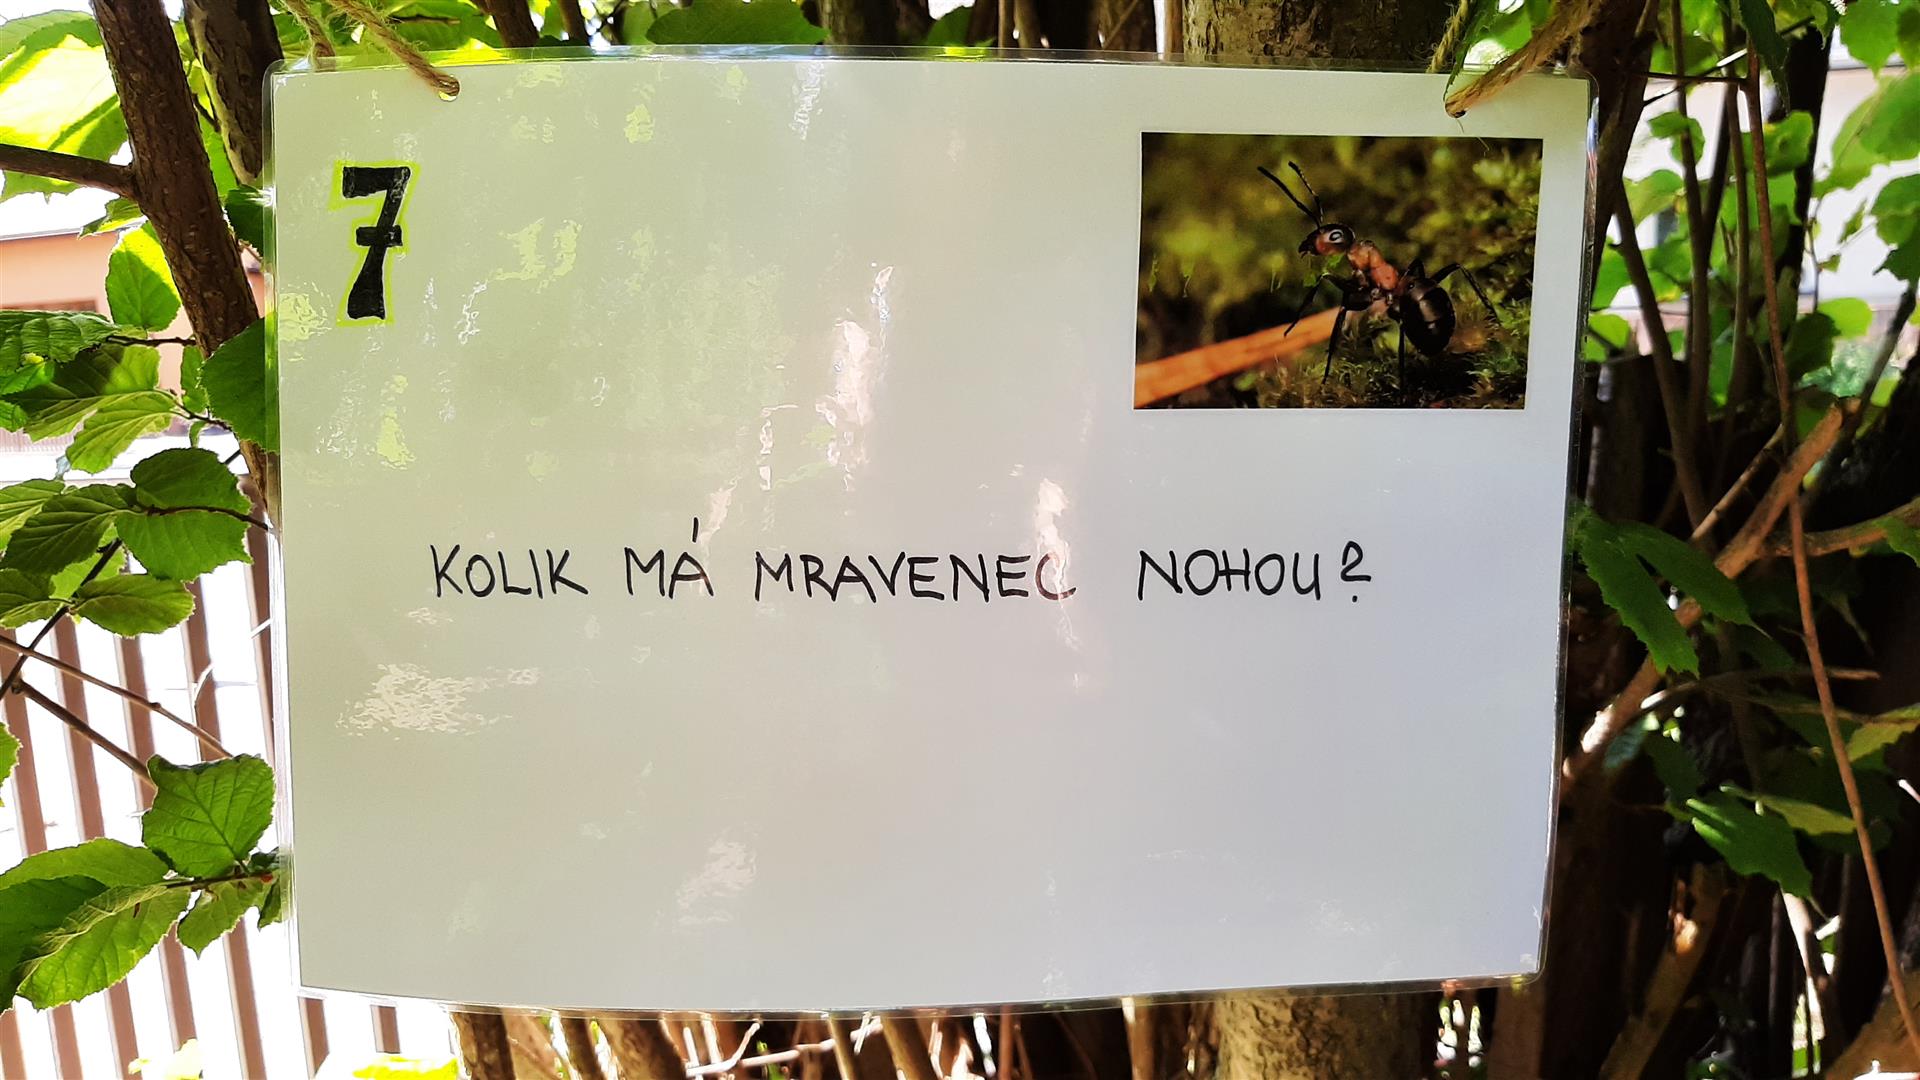 7
KOLIK MÁ MRAVENEC NOHOU?